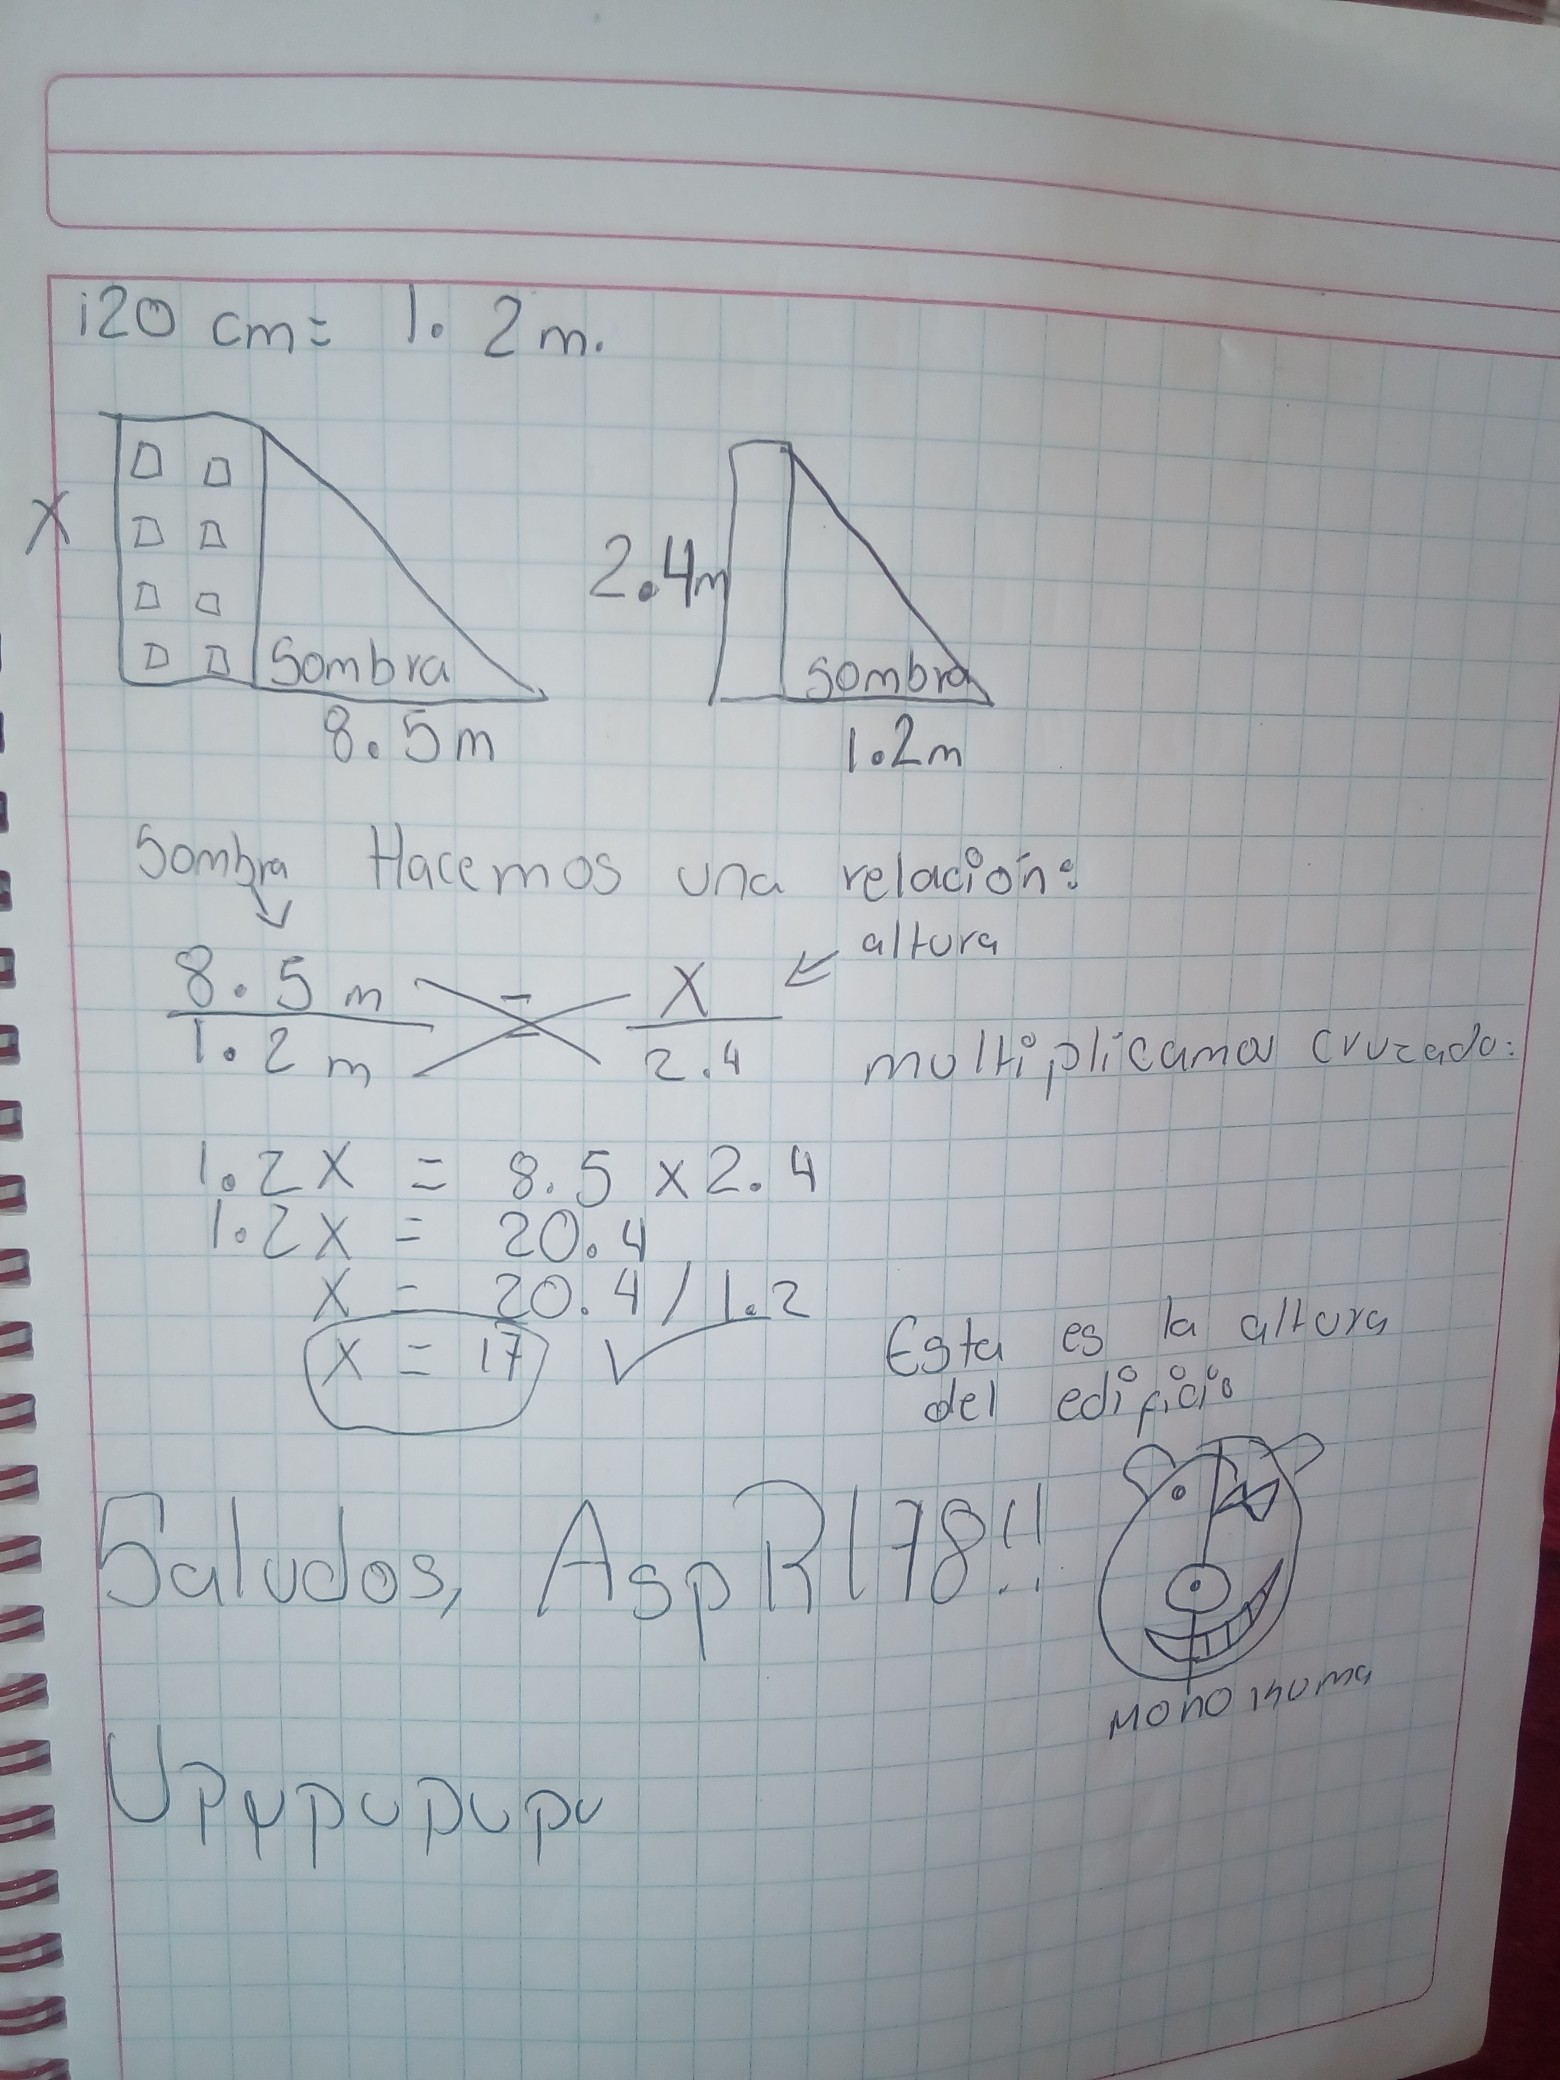 120 cm = 1.2 m.
X
2.4m
Sombra
sombra
8.5m
1.2m
Sombra Hacemos una relación:
altura
8.5 m = X
1.2 m 2.4
multiplicamos cruzado:
1.2X = 8.5 x 2.4
1.2X = 20.4
X = 20.4 / 1.2
X = 17 ✓
Esta es la altura
del edificio
Saludos, AspR178!!
Monokuma
Upupupupu